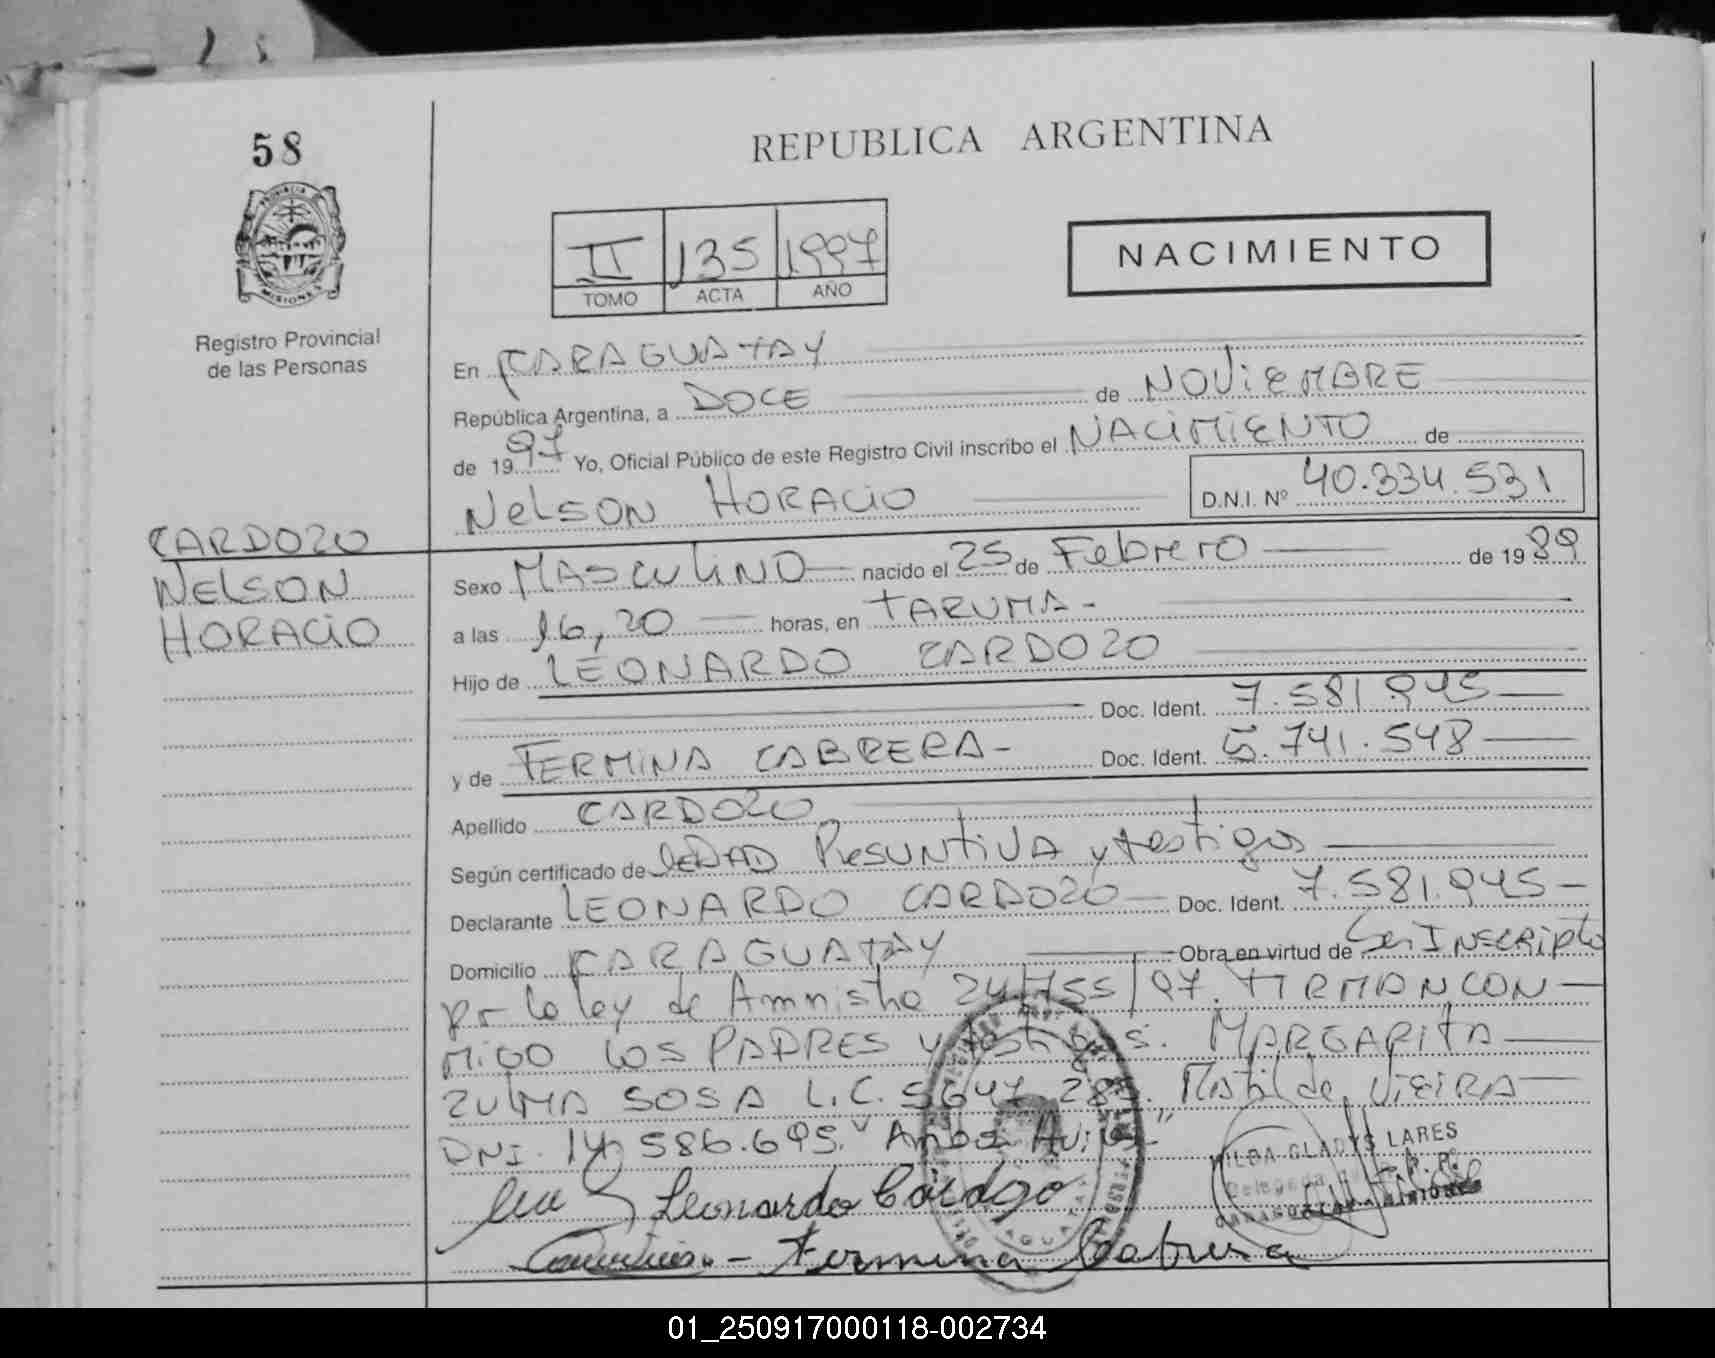 58
REPUBLICA ARGENTINA
PROVINCIA
MISIONES
Registro Provincial
de las Personas
II 135 1997
TOMO ACTA AÑO
NACIMIENTO
En CARAGUATAY
República Argentina, a DOCE de NOViEMBRE
de 1997 Yo, Oficial Público de este Registro Civil inscribo el NACIMIENTO de
NELSON HORACIO D.N.I. Nº 40.334.531
CARDOZO
NELSON
HORACIO
Sexo MASCULINO nacido el 25 de Febrero de 1989
a las 16,20 horas, en TARUMA-
Hijo de LEONARDO CARDOZO
Doc. Ident. 7.581.945
y de FERMINA CABRERA- Doc. Ident. 5.741.548
Apellido CARDOZO
Según certificado de EDAD PRESUNTIVA y testigos
Declarante LEONARDO CARDOZO Doc. Ident. 7.581.945-
Domicilio CARAGUATAY Obra en virtud de Ser INSCRIPto
por la ley de Amnistia 24755/97. FIRMAN CON-
MIGO LOS PADRES y testigos. MARGARITA
ZULMA SOSA L.C. 5647 285. Matilde VIEIRA
DNI. 14.586.695.
Leonardo Cardozo
Fermina Cabrera
HILDA GLADYS LARES
Delegada
01_250917000118-002734